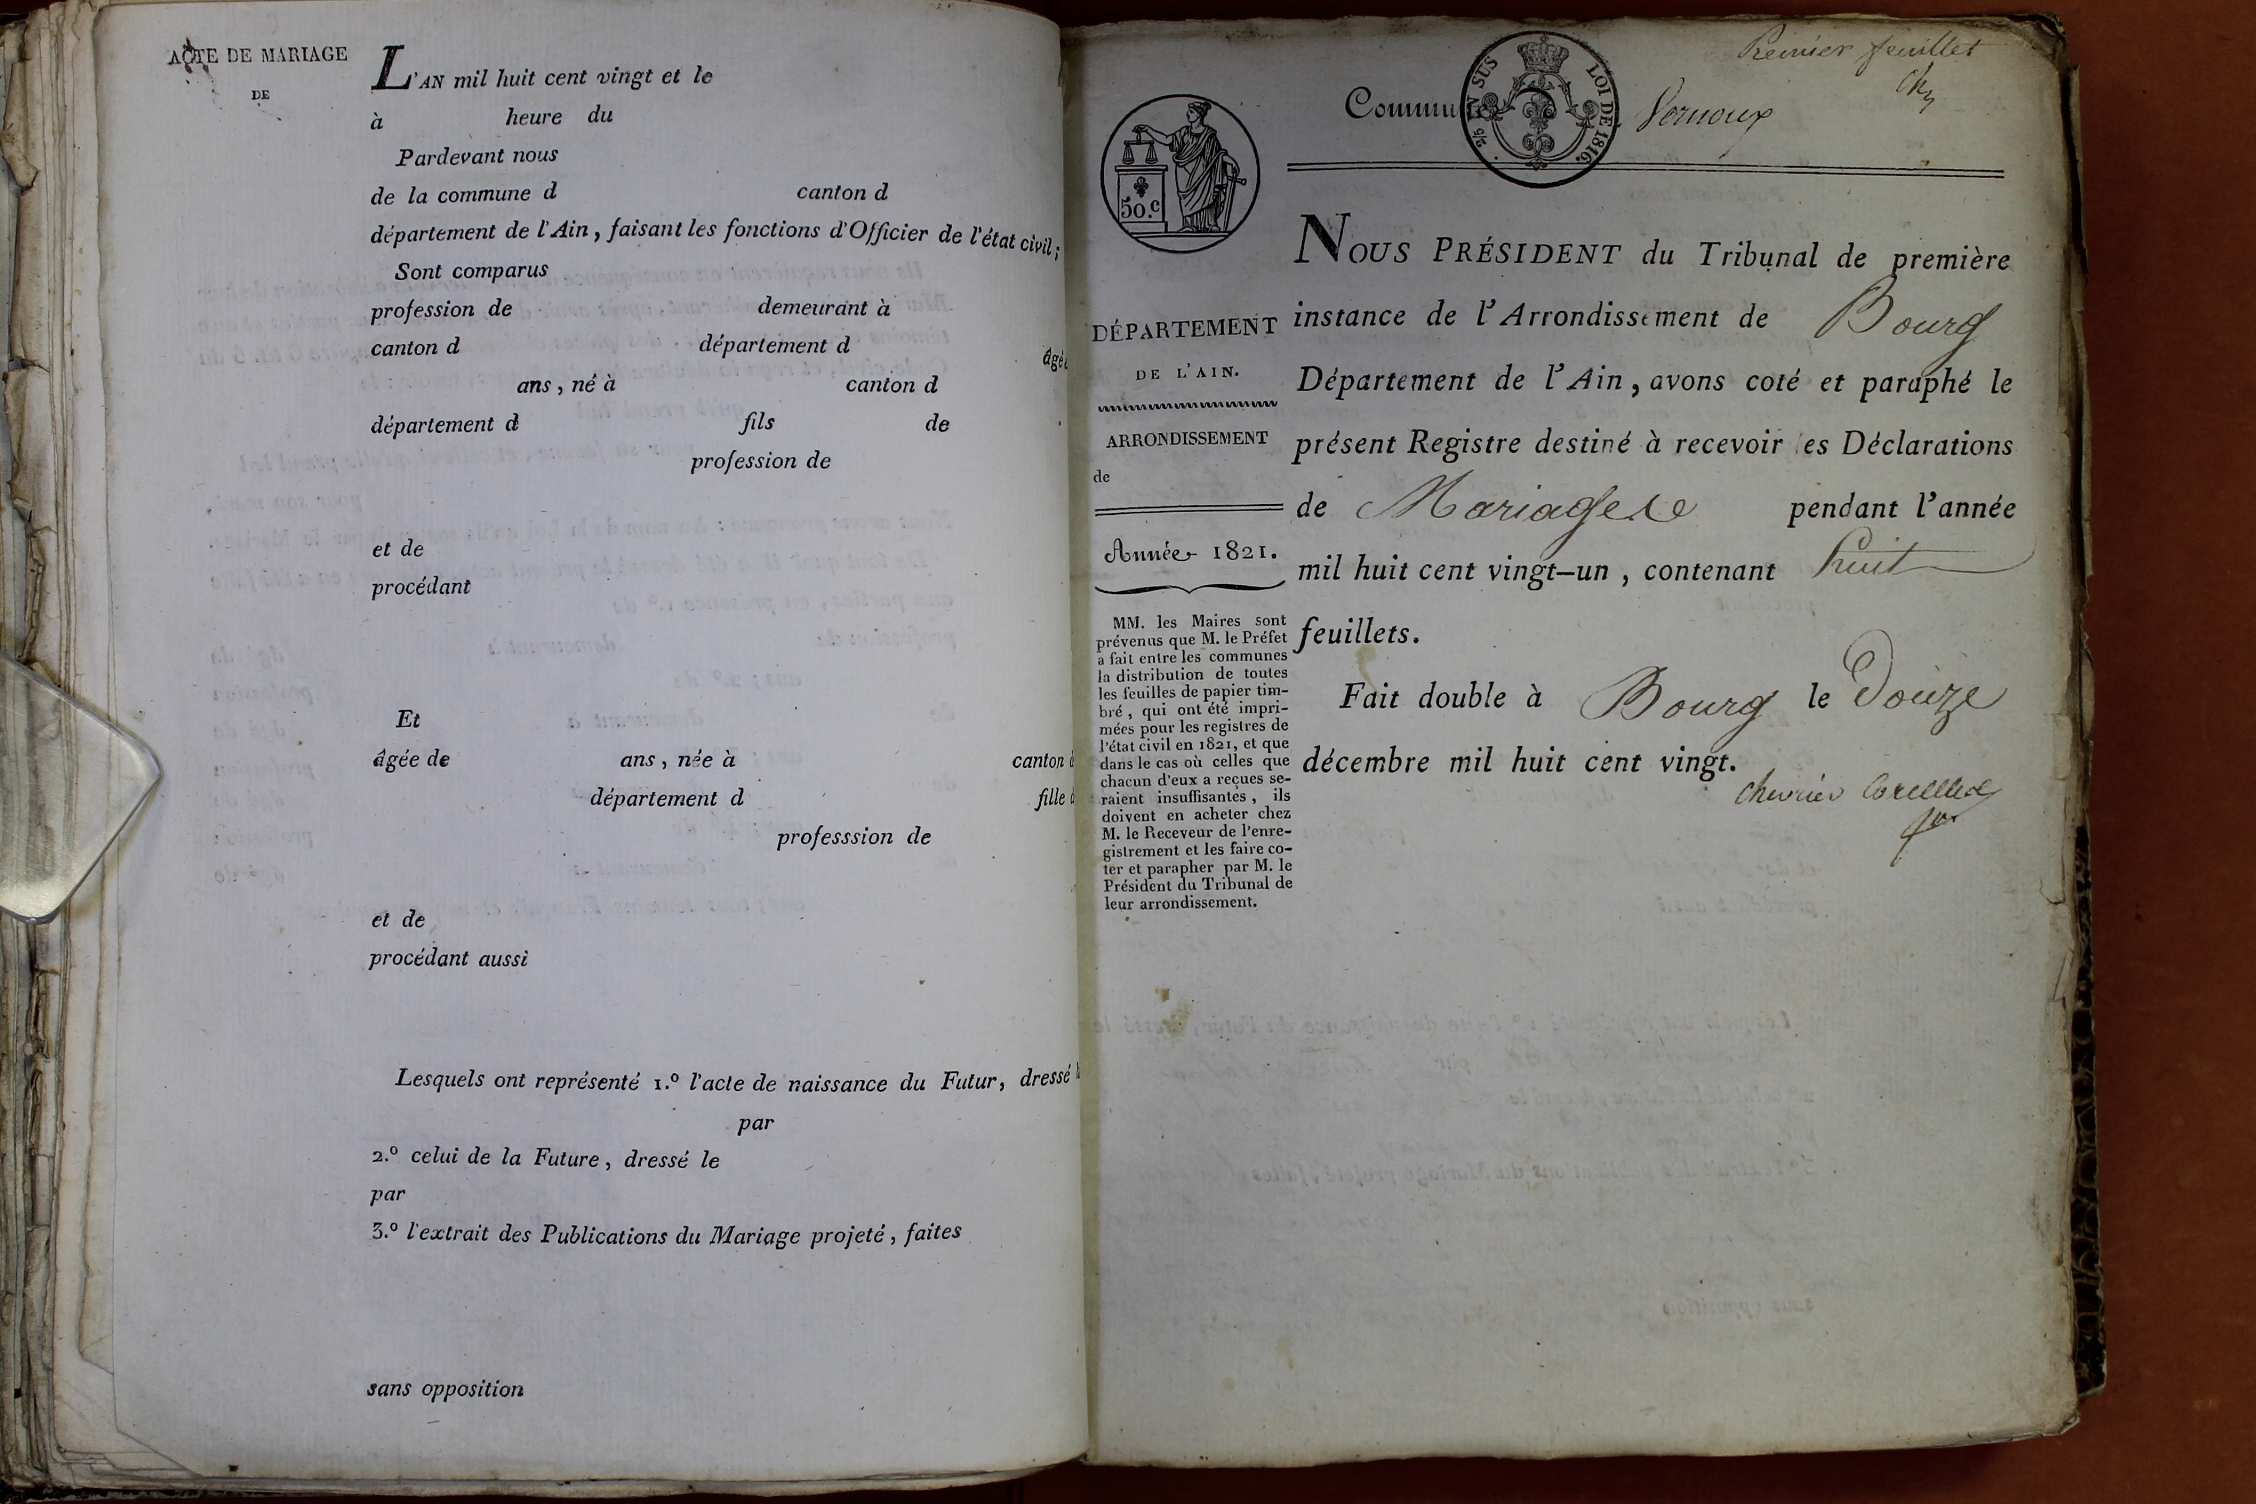 ACTE DE MARIAGE
DE
L'AN mil huit cent vingt et le
à heure du
Pardevant nous
de la commune d canton d
département de l'Ain, faisant les fonctions d'Officier de l'état civil;
Sont comparus
profession de demeurant à
canton d département d âgé
ans, né à canton d
département d fils de
profession de
et de
procédant
Et
âgée de ans, née à canton d
département d fille d
professsion de
et de
procédant aussi
Lesquels ont représenté 1.º l'acte de naissance du Futur, dressé l
par
2.º celui de la Future, dressé le
par
3.º l'extrait des Publications du Mariage projeté, faites
sans opposition
Premier feuillet
EN SUS LOI DE 1816.
Commu Vernoux
50.c
DÉPARTEMENT
DE L'AIN.
ARRONDISSEMENT
de
Année 1821.
MM. les Maires sont
prévenus que M. le Préfet
a fait entre les communes
la distribution de toutes
les feuilles de papier tim-
bré, qui ont été impri-
mées pour les registres de
l'état civil en 1821, et que
dans le cas où celles que
chacun d'eux a reçues se-
raient insuffisantes, ils
doivent en acheter chez
M. le Receveur de l'enre-
gistrement et les faire co-
ter et parapher par M. le
Président du Tribunal de
leur arrondissement.
NOUS PRÉSIDENT du Tribunal de première
instance de l'Arrondissement de Bourg
Département de l'Ain, avons coté et paraphé le
présent Registre destiné à recevoir les Déclarations
de Mariage pendant l'année
mil huit cent vingt-un, contenant huit
feuillets.
Fait double à Bourg le Douze
décembre mil huit cent vingt.
Chevrier Corcelles